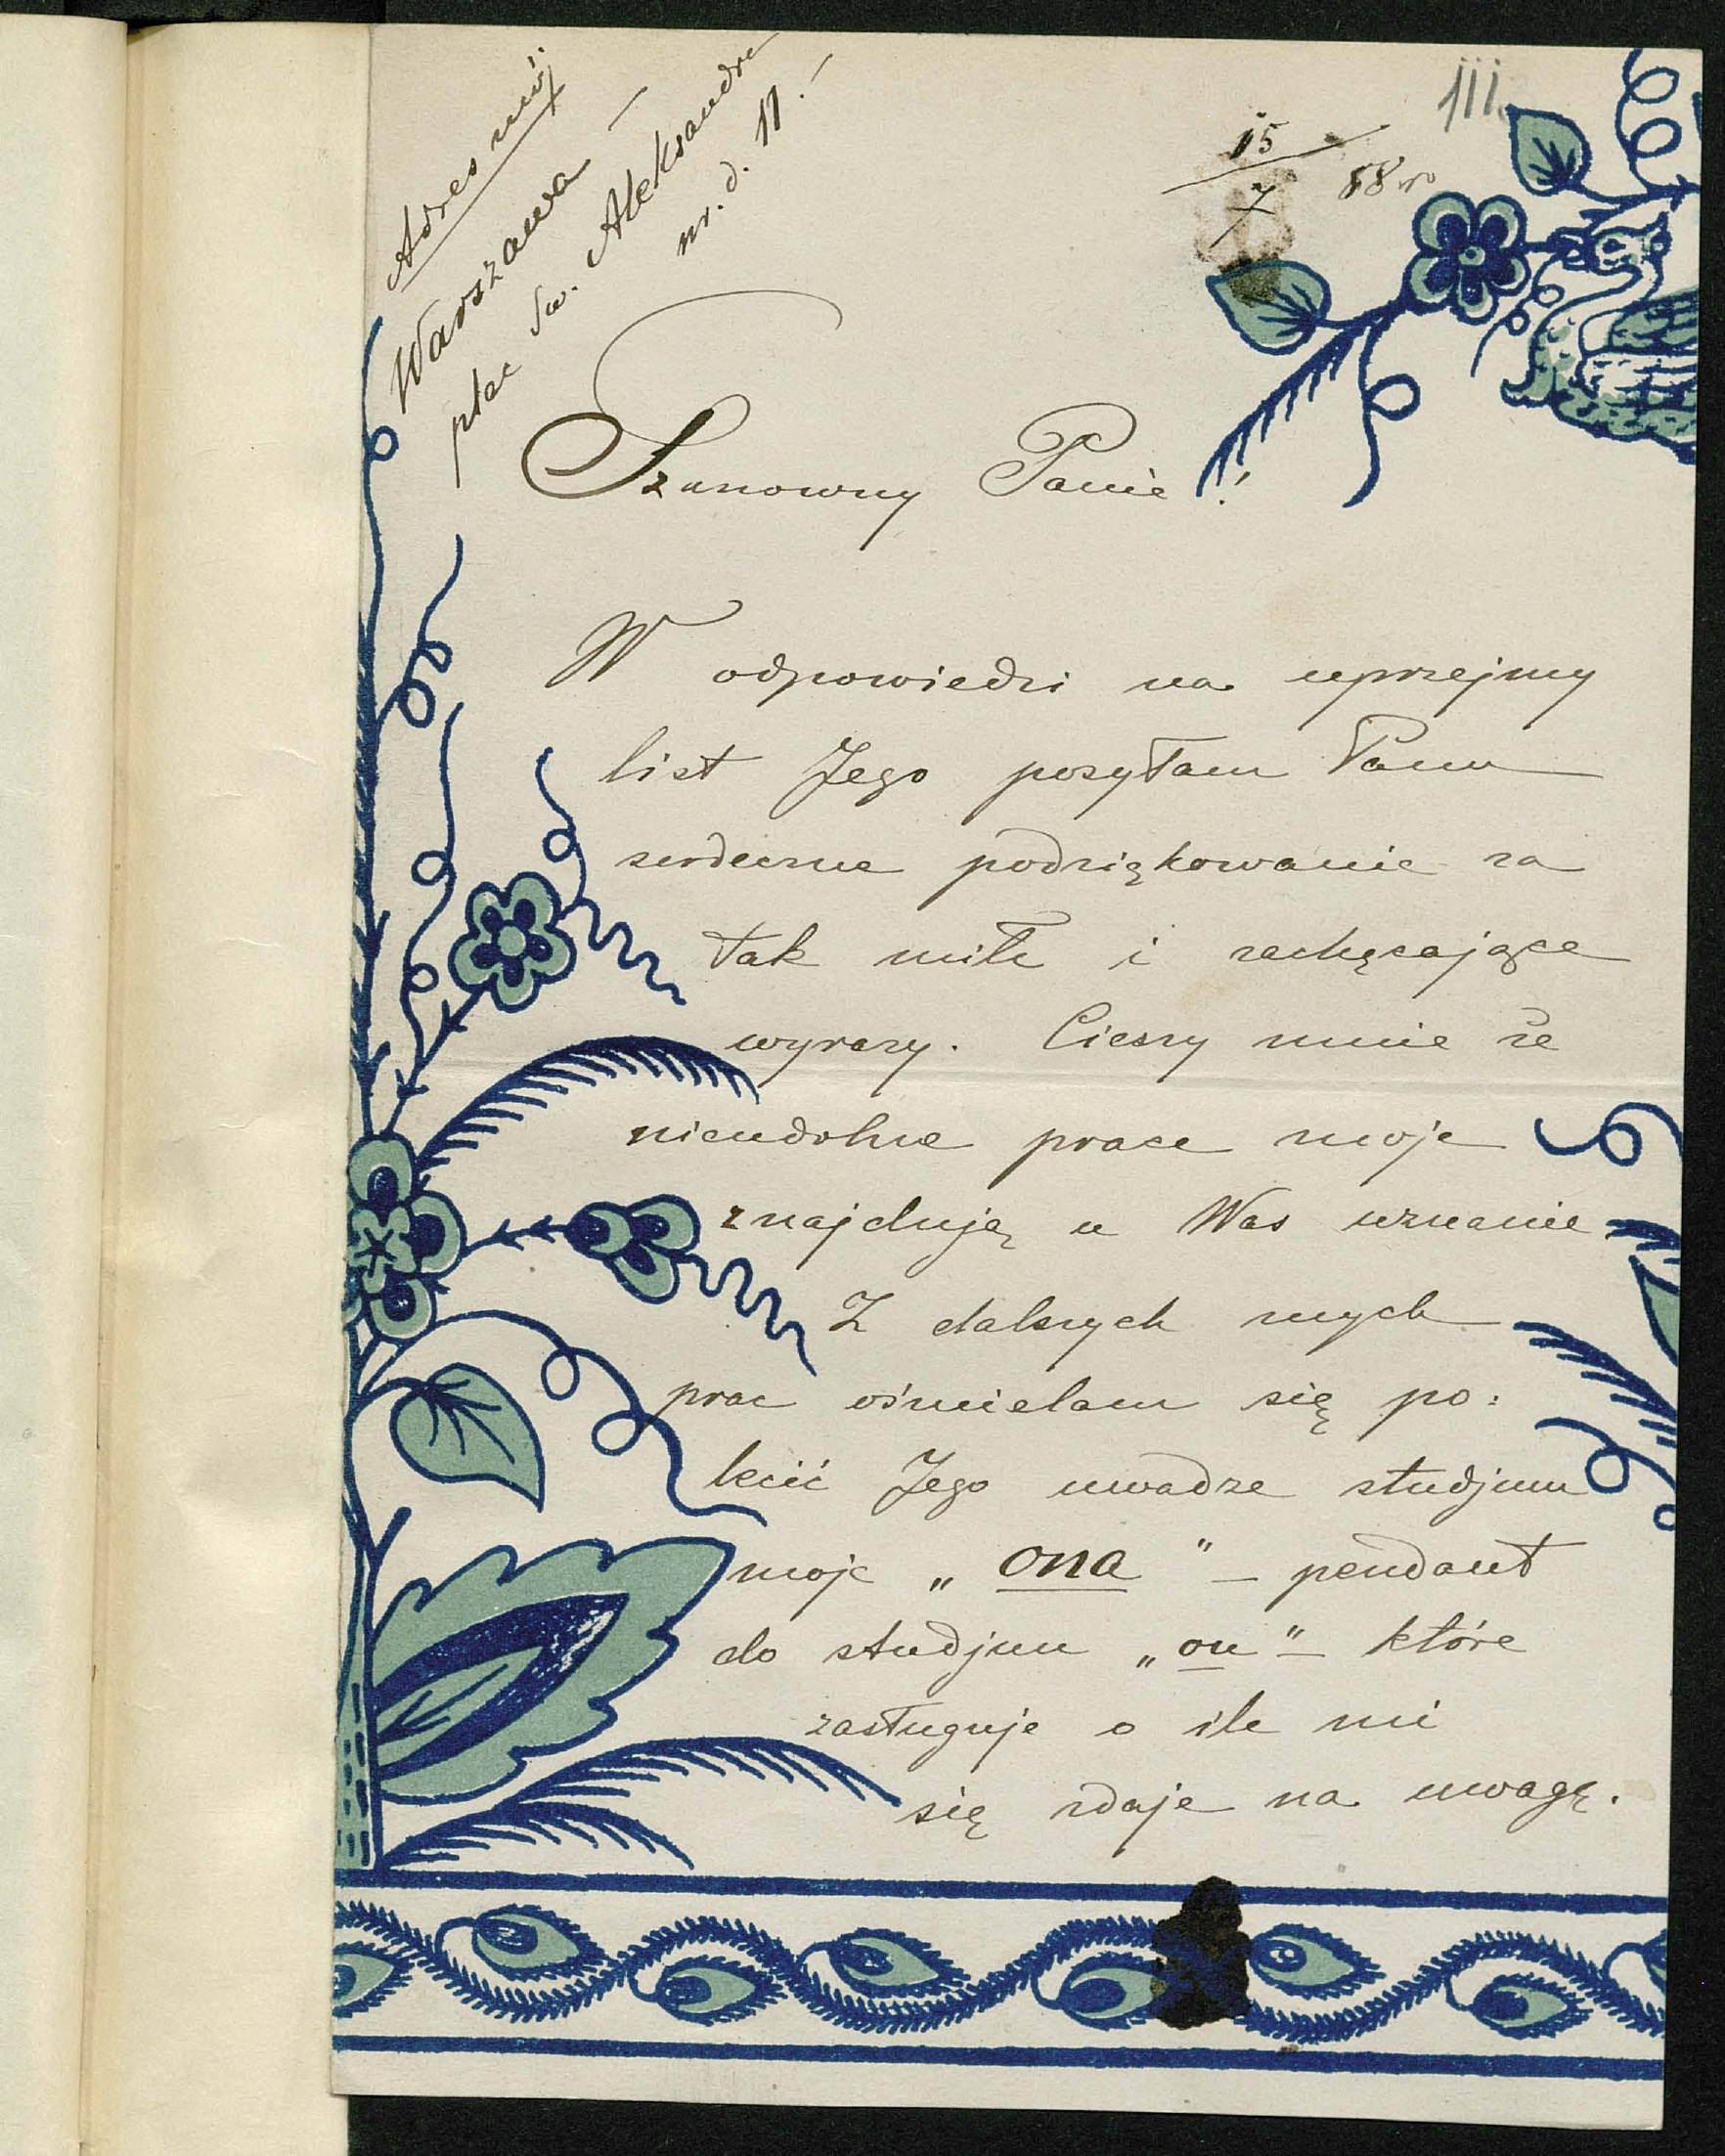 Adres mój:
Warszawa —
plac Św. Aleksandra
nr. d. 11. —
15/7 88 ro
Szanowny Panie!
W odpowiedzi na uprzejmy
list Jego posyłam Panu
serdeczne podziękowanie za
tak miłe i zachęcające
wyrazy. Cieszy mnie że
nieudolne prace moje
znajdują u Was uznanie
Z dalszych mych
prac ośmielam się po:
lecić Jego uwadze studjum
moje „ona" — pendant
do studjum „on" — które
zasługuje o ile mi
się zdaje na uwagę.